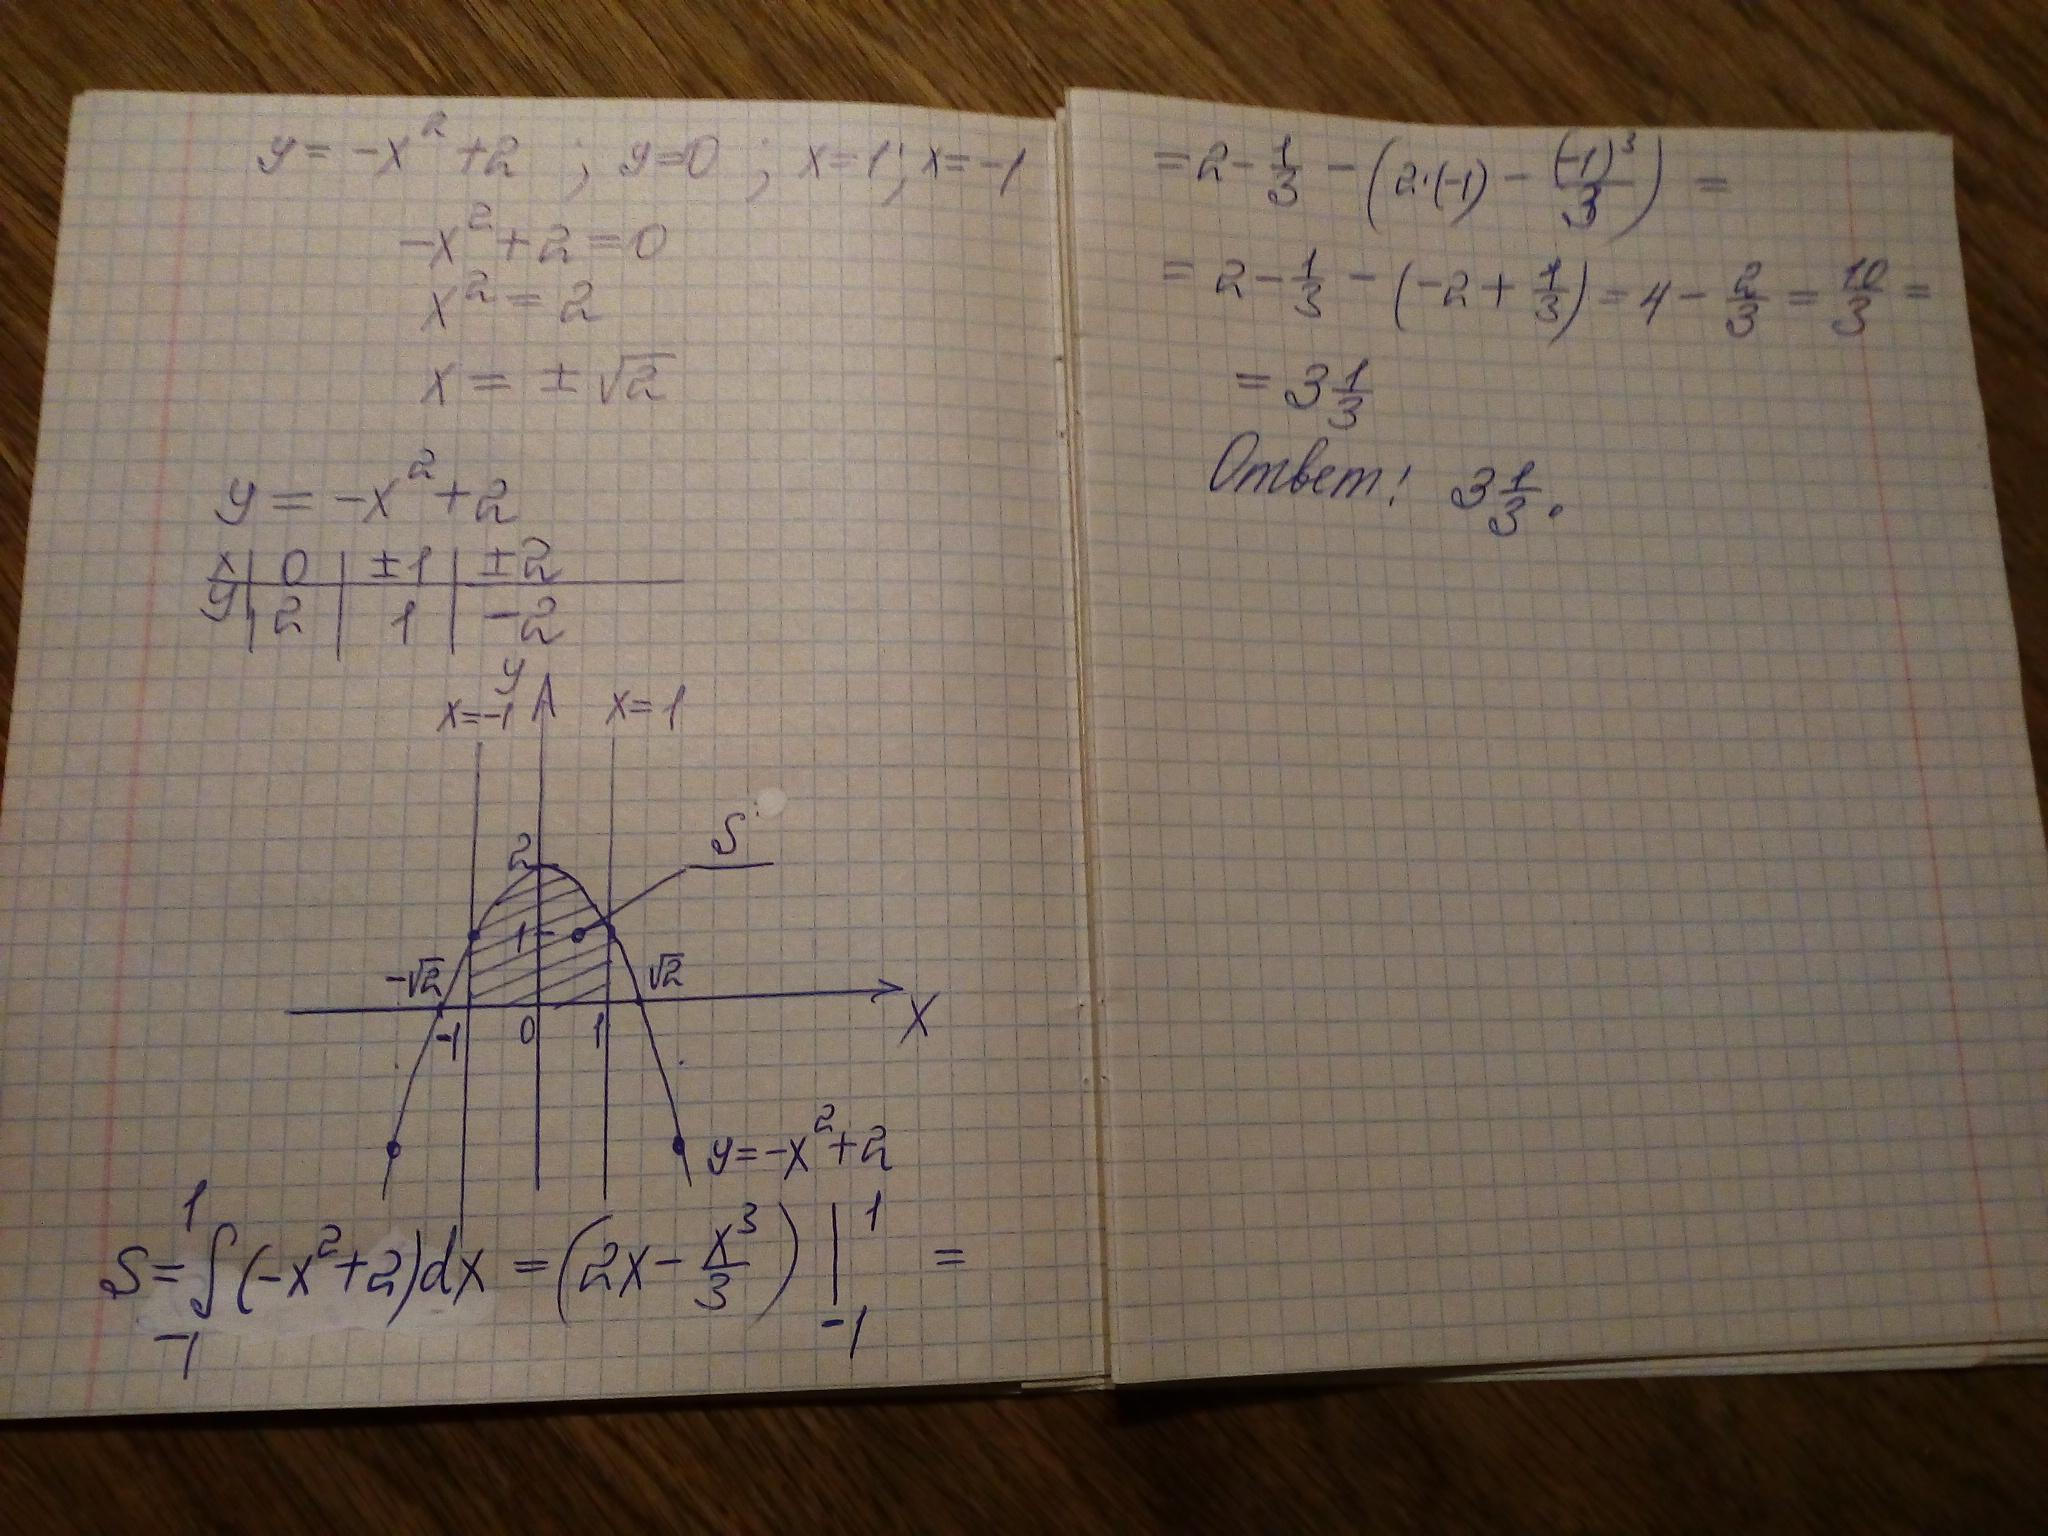 y = -x² + 2 ; y = 0 ; x = 1 ; x = -1
-x² + 2 = 0
x² = 2
x = ±√2
y = -x² + 2
x | 0 | ±1 | ±2
y | 2 | 1 | -2
y
x=-1 x=1
S
2
1
-√2 √2
-1 0 1 X
y = -x² + 2
S = ∫₋₁¹ (-x² + 2)dx = (2x - x³/3) |₋₁¹ =
= 2 - 1/3 - (2·(-1) - (-1)³/3) =
= 2 - 1/3 - (-2 + 1/3) = 4 - 2/3 = 10/3 =
= 3 1/3
Ответ: 3 1/3.